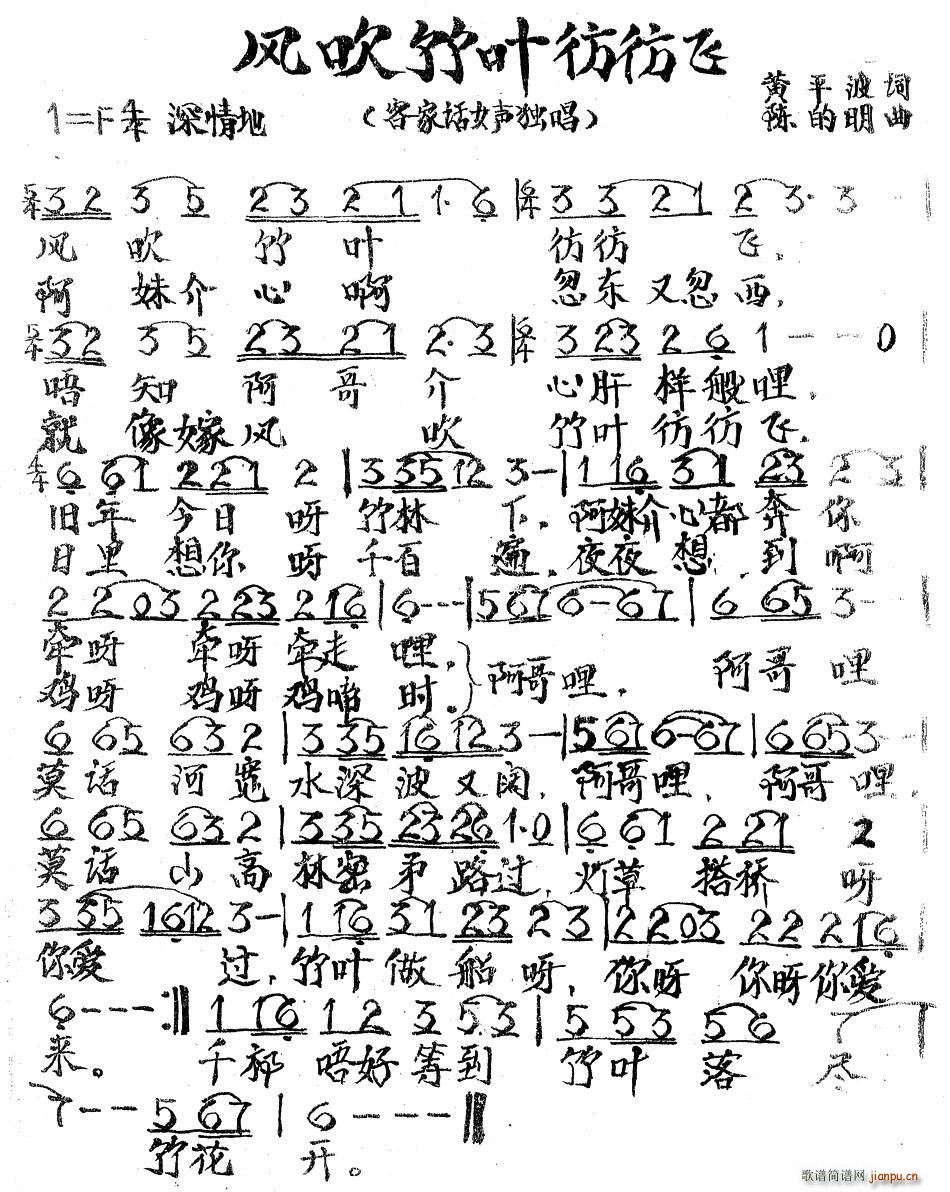 风吹竹叶彷彷飞
1=F 4/4 深情地 （客家话女声独唱） 黄平波词
陈的明曲
5/4 3 2 3 5 2 3 2 1 1· 6 | 6/4 3 3 2 1 2 3· 3 |
风 吹 竹 叶 彷彷 飞,
阿 妹介心啊 忽东又忽西,
5/4 3 2 3 5 2 3 2 1 2· 3 | 6/4 3 2 3 2 6 1 - - 0
唔 知 阿哥 介 心肝样般哩,
就 像嫁风 吹 竹叶彷彷飞,
4/4 6 6 1 2 2 1 2 | 3 3 5 1 2 3 - | 1 1 6 3 1 2 3 2 3
旧年 今日 呀竹林 下, 阿妹介心都奔你
日里想你呀千百 遍, 夜夜想 到啊
2 2 0 3 2 2 3 2 1 6 | 6 - - - | 5 6 7 6 - 6 7 | 6 6 5 3 - - |
牵呀 牵呀牵走 哩, 阿哥哩, 阿哥哩
鸡呀 鸡呀鸡啼 时。
6 6 5 6 3 2 | 3 3 5 1 6 1 2 3 - | 5 6 7 6 - 6 7 | 6 6 5 3 - - |
莫话 河宽 水深 波又阔, 阿哥哩, 阿哥 哩,
6 6 5 6 3 2 | 3 3 5 2 3 2 6 1· 0 | 6 6 1 2 2 1 2
莫话 山高 林密 路过, 灯草 搭桥 呀
3 3 5 1 6 1 2 3 - | 1 1 6 3 1 2 3 2 3 | 2 2 0 3 2 2 2 1 6 |
你爱 过, 竹叶做船呀, 你呀 你呀你爱
6 - - - :‖ 1 1 6 1 2 3 5 3 | 5 5 3 5 6 7
来。 千祈唔好等到 竹叶 落 尽
7 - - 5 6 7 | 6 - - - ‖
竹花 开。
歌谱简谱网 jianpu.cn